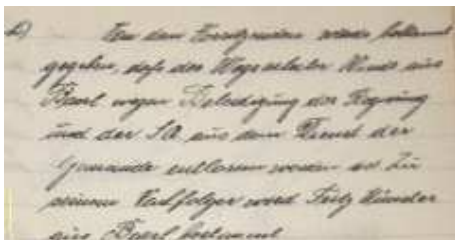 Von dem Vorsitzenden wurde bekannt
gegeben, daß der Wegearbeiter aus
Baerl wegen Beleidigung der Regierung
und der SA aus dem Dienst der
Gemeinde entlassen worden ist. Zu
seinem Nachfolger wird Fritz
aus Baerl bestimmt